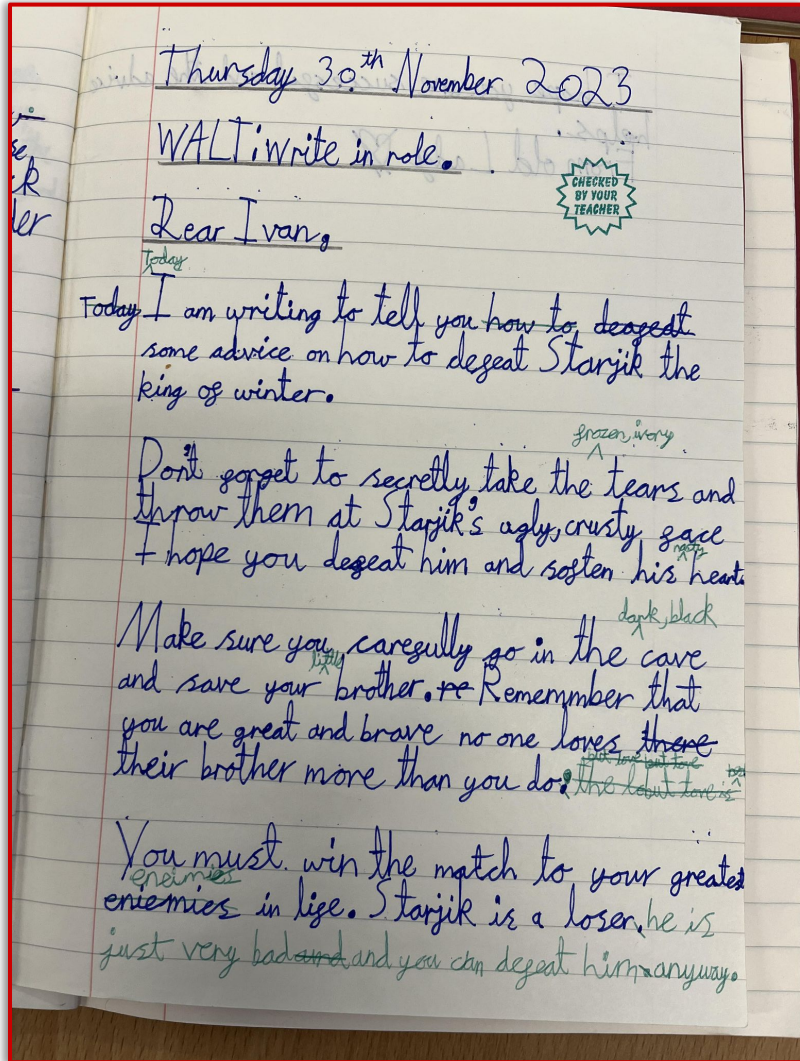 Thursday 30th November 2023
WALT: Write in role.
CHECKED
BY YOUR
TEACHER
Dear Ivan,
Today
Today I am writing to tell you how to deageat
some advice on how to defeat Starjik the
king of winter.
frozen, ivory
Don't forget to secretly take the tears and
throw them at Starjik's ugly, crusty face
nasty
I hope you defeat him and soften his heart.
dark, black
Make sure you carefully go in the cave
little
and save your brother. re Rememmber that
you are great and brave no one loves there
their brother more than you do. the
You must win the match to your greatest
eneimies
eniemies in life. Starjik is a loser, he is
just very bad and and you can defeat him anyway.